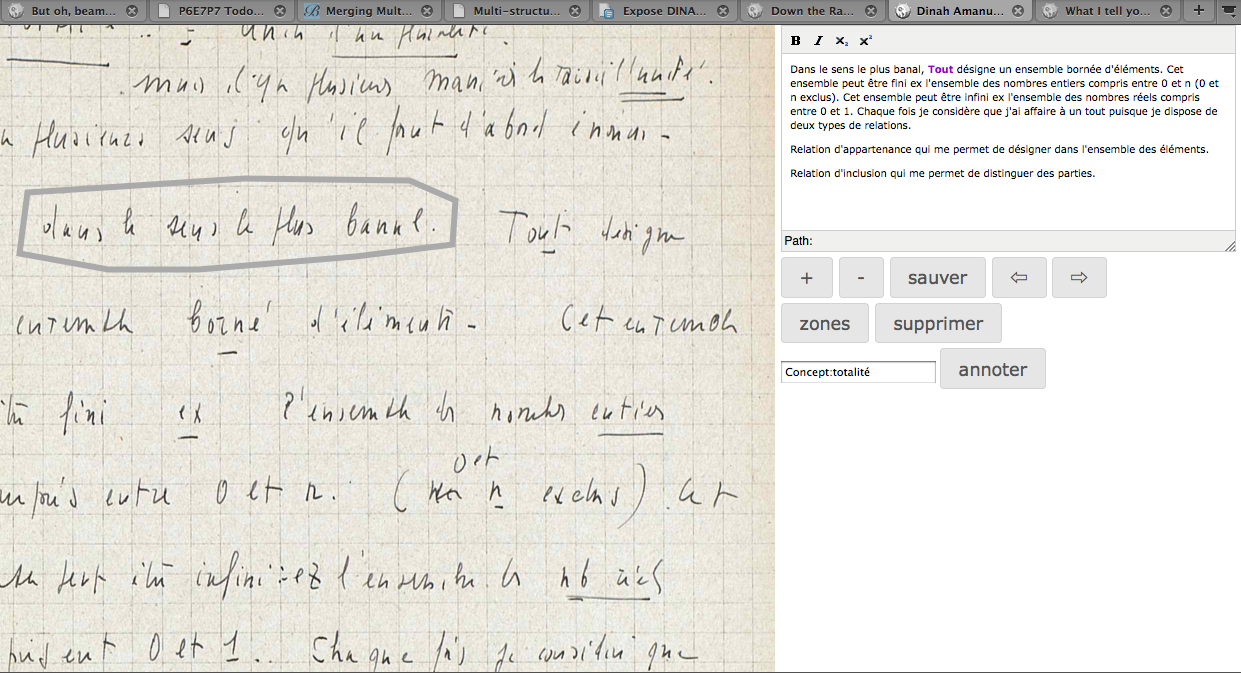 But oh, beam...
P6E7P7 Todo...
Merging Mult...
Multi-structu...
Expose DINA...
Down the Ra...
Dinah Amanu...
What I tell yo...
+
d'un
mais plusieurs l'unité.
plusieurs sens qu'il faut d'abord
dans le sens le plus banal. Tout désigne
ensemble borné d'éléments - Cet ensemble
être fini ex l'ensemble de nombres entiers
0 et
entre 0 et n. ( n exclus) . Cet
peut être infini : ex l'ensemble de nb réels
0 et 1. . Chaque fois je considère que
B I x₂ x²
Dans le sens le plus banal, Tout désigne un ensemble bornée d'éléments. Cet
ensemble peut être fini ex l'ensemble des nombres entiers compris entre 0 et n (0 et
n exclus). Cet ensemble peut être infini ex l'ensemble des nombres réels compris
entre 0 et 1. Chaque fois je considère que j'ai affaire à un tout puisque je dispose de
deux types de relations.
Relation d'appartenance qui me permet de désigner dans l'ensemble des éléments.
Relation d'inclusion qui me permet de distinguer des parties.
Path:
+ - sauver ⇦ ⇨
zones supprimer
Concept:totalité annoter